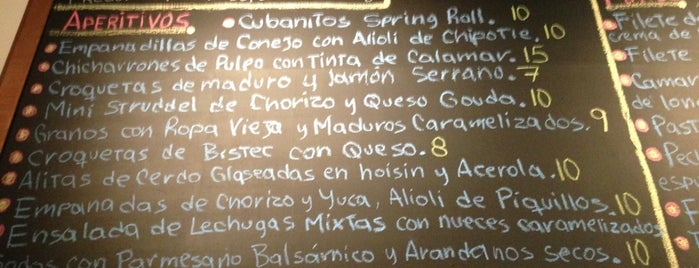 APERITIVOS. Cubanitos Spring Roll. 10
Empanadillas de Conejo con Alioli de Chipotle. 10
Chicharrones de Pulpo con Tinta de Calamar. 15
Croquetas de maduro y Jamón Serrano. 7
Mini Struddel de Chorizo y Queso Gouda. 10
Granos con Ropa Vieja y Maduros Caramelizados. 9
Croquetas de Bistec con Queso. 8
Alitas de Cerdo Glaseadas en hoisin y Acerola. 10
Empanadas de Chorizo y Yuca, Alioli de Piquillos. 10
Ensalada de Lechugas Mixtas con nueces caramelizadas
con Parmesano Balsámico y Arandanos secos. 10
Filete
crema de
Filete